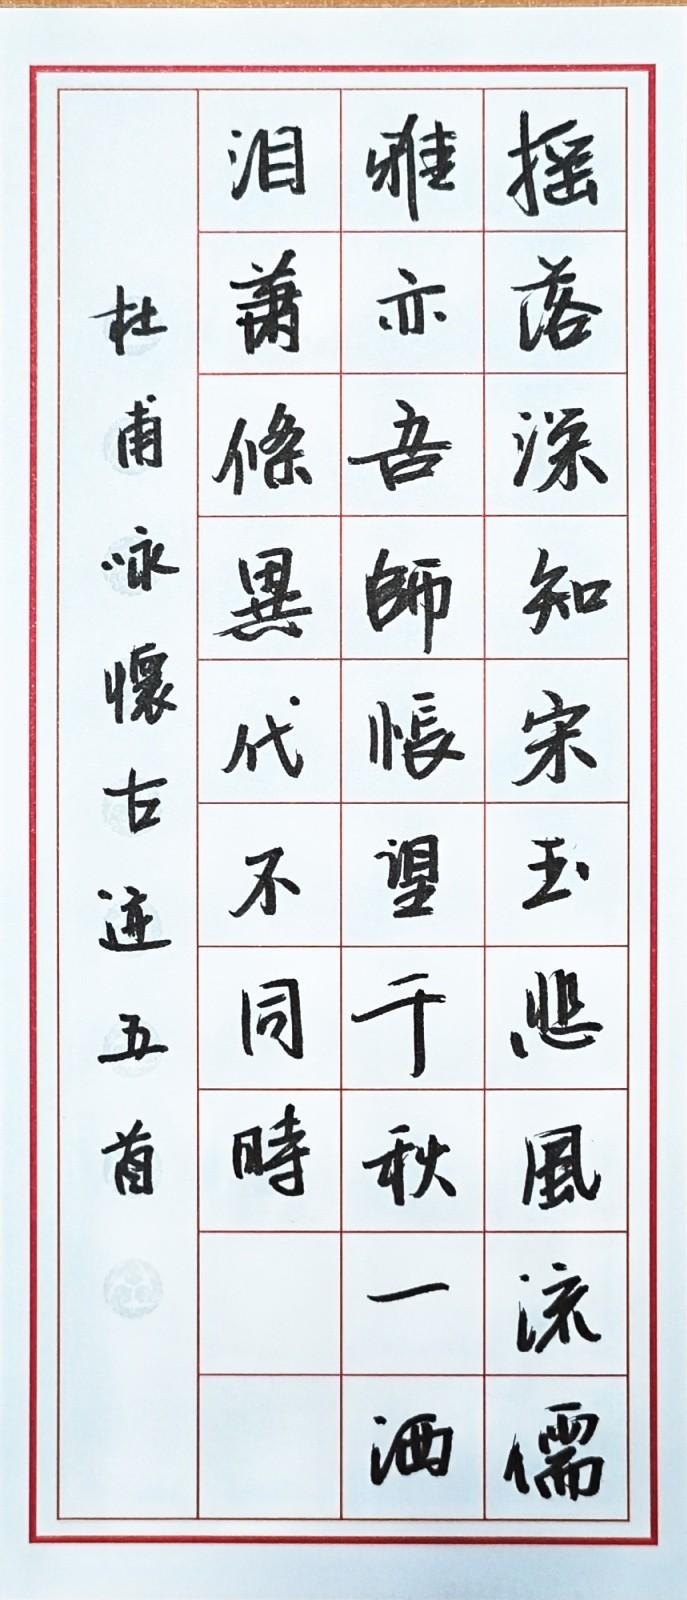 摇落深知宋玉悲風流儒
雅亦吾師悵望千秋一洒
泪蕭條異代不同時
杜甫咏懷古迹五首